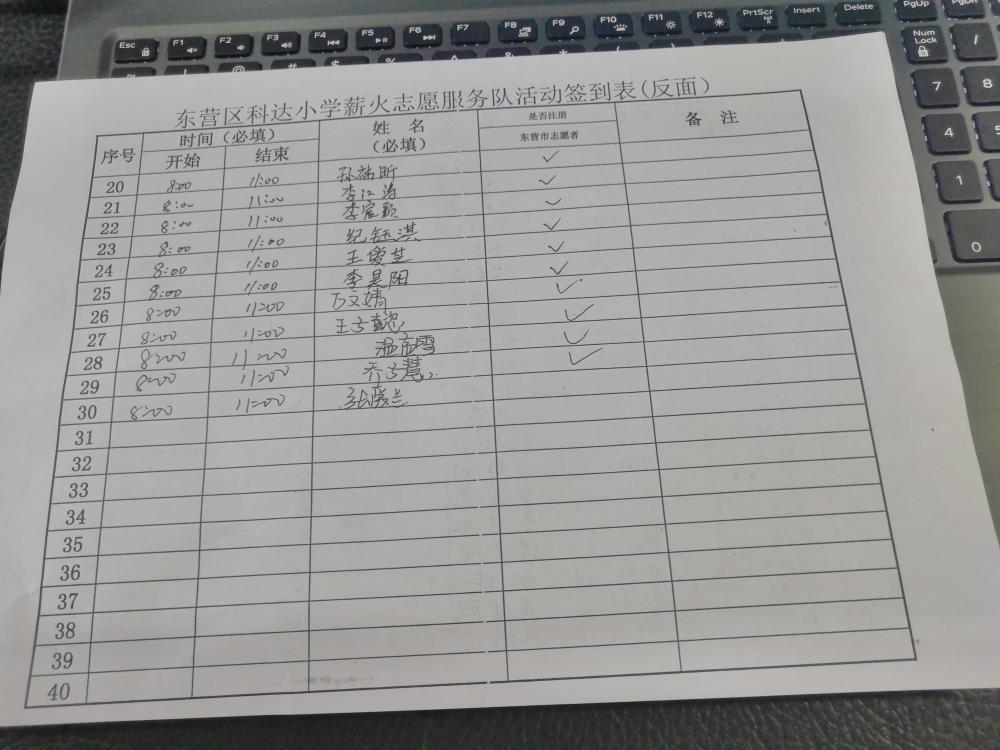 Esc F1 F2 F3 F4 F5 F6 F7 F8 F9 F10 F11 F12 PrtScr Insert Delete PgUp PgDn
Num Lock /
7 8
4 5
1
0
东营区科达小学薪火志愿服务队活动签到表(反面)
序号 时间(必填) 姓 名 (必填) 是否注册 东营市志愿者 备 注
开始 结束
20 8:00 11:00 孙祎昕 ✓
21 8:00 11:00 李江涛 ✓
22 8:00 11:00 李宸颖 ✓
23 8:00 11:00 纪钰淇 ✓
24 8:00 11:00 王爱芝 ✓
25 8:00 11:00 李昊阳 ✓
26 8:00 11:00 万文婧 ✓
27 8:00 11:00 王子懿 ✓
28 8:00 11:00 ✓
29 8:00 11:00 乔子慧 ✓
30 8:00 11:00 张爱兰
31
32
33
34
35
36
37
38
39
40